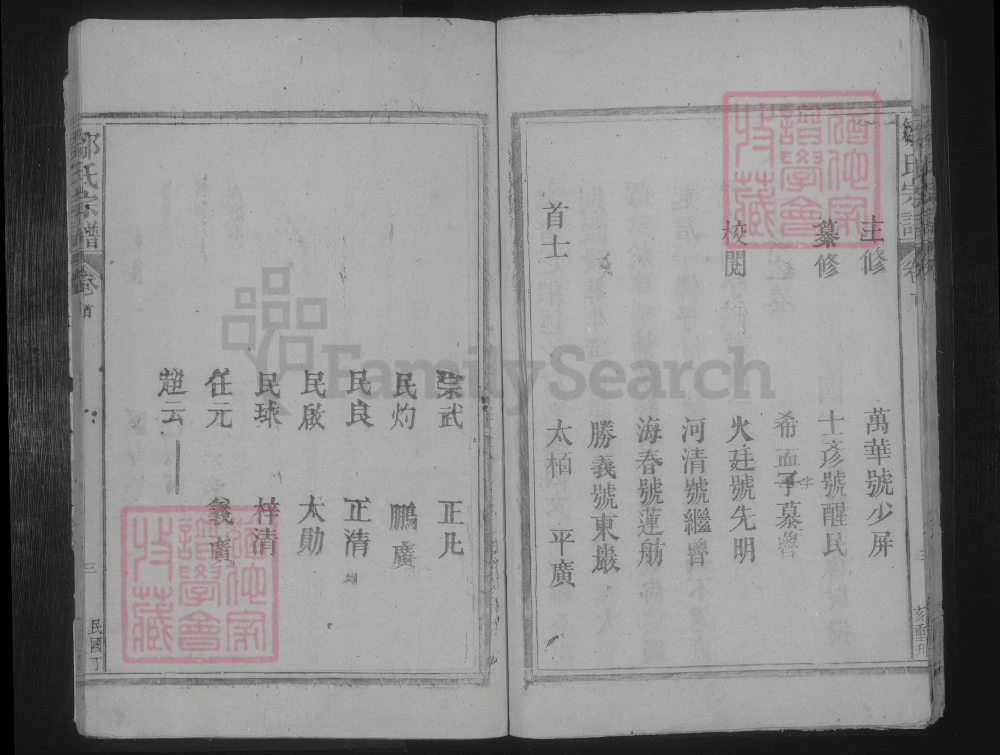 鄒氏宗譜
主修
萬華號少屏
纂修
士彥號醒民
希孟字慕魯
校閱
火廷號先明
河清號繼魯
海春號蓮舫
勝義號東巖
首士
太柏 平廣
宗武 正凡
民灼 鵬廣
民良 正清
民啟 大勛
民球 梓清
任元 義廣
超云
鄒氏宗譜
卷首
三
民國丁
刻重刊
FamilySearch
道他家譜學會收藏
道他家譜學會收藏